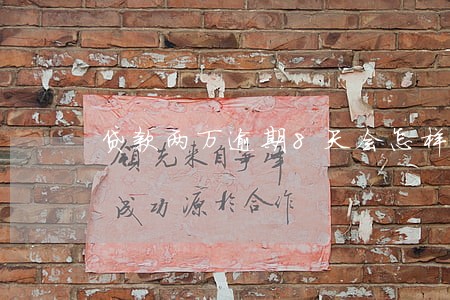 贷款两万逾期8天会怎样
领先来自争牛
成功源於合作